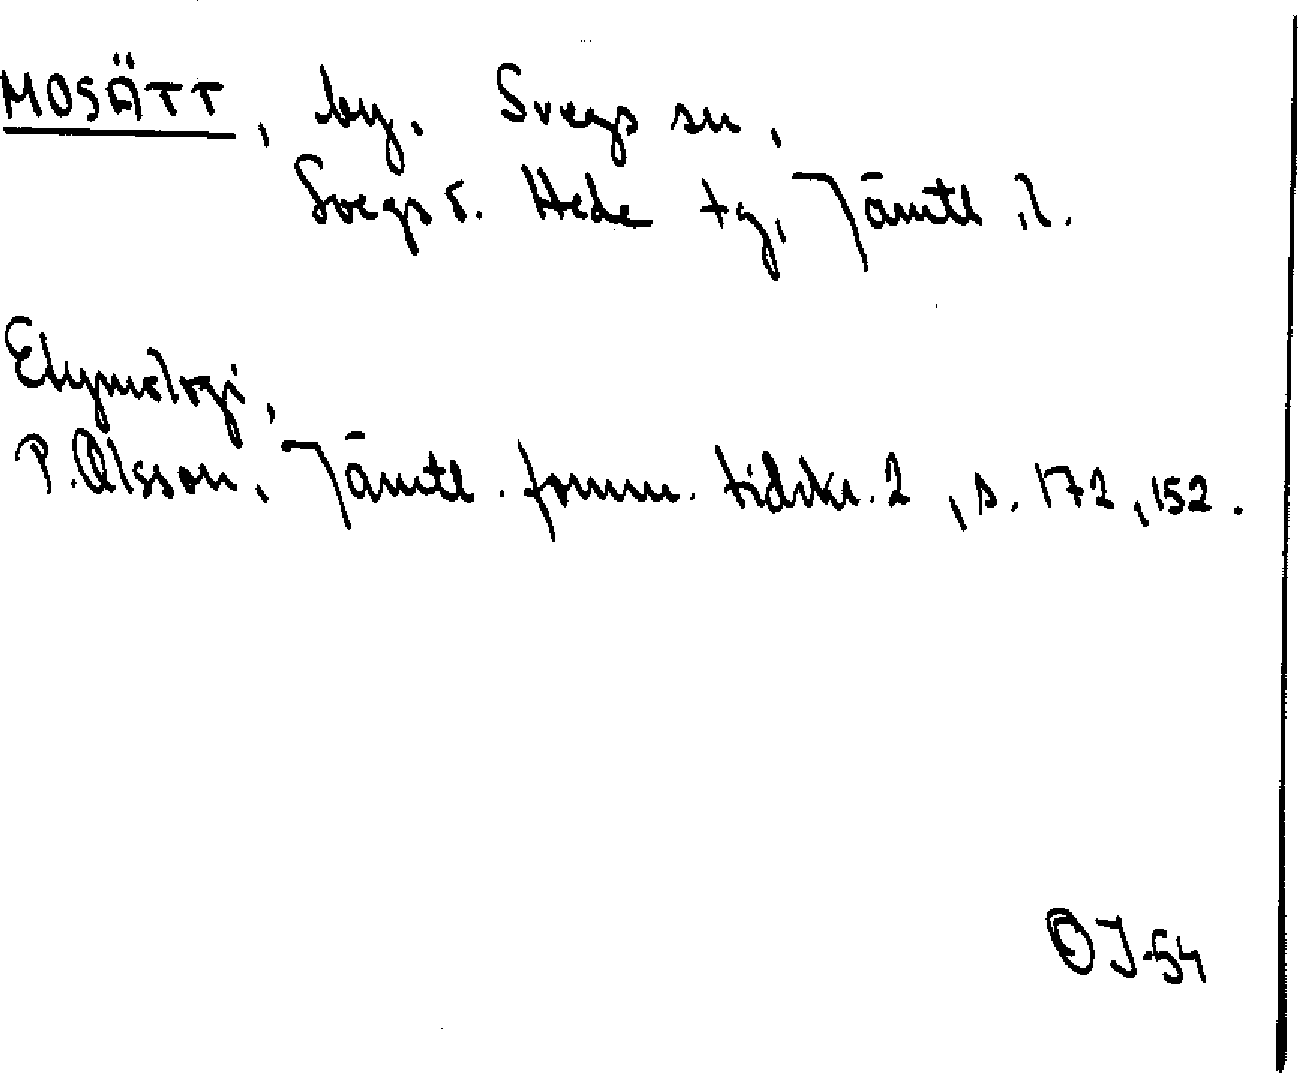 MOSÄTT, by, Svegs sn,
Svegs s. Hede tg, Jämtl. l.
Etymologi,
P. Olsson, Jämtl. fornm. tidskr. 2, s. 172, 152.
OJ-54